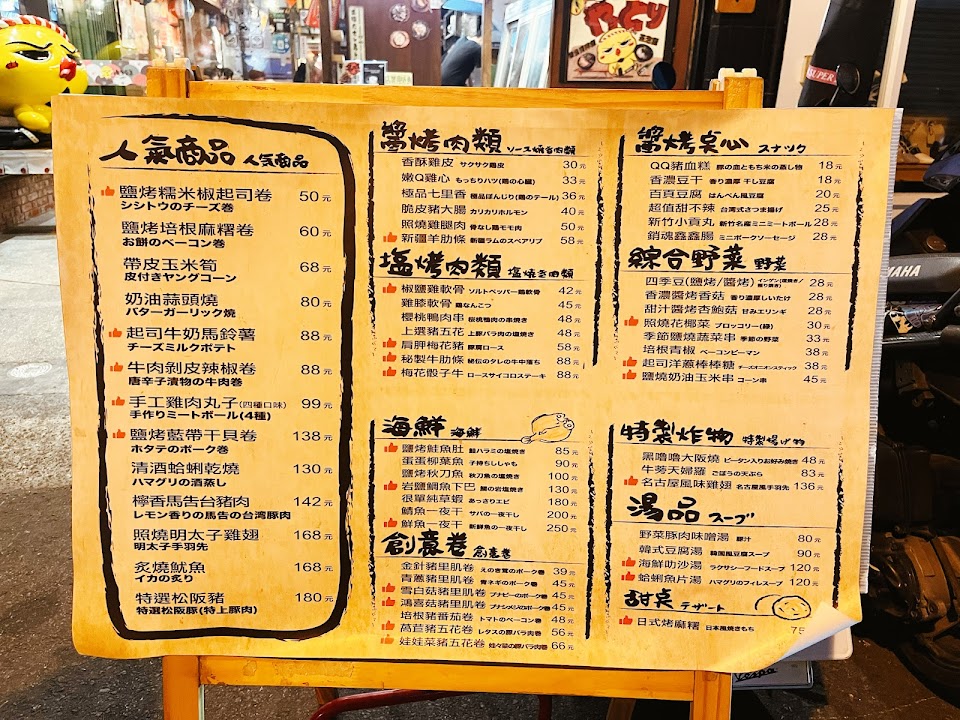 人氣商品 人気商品
鹽烤糯米椒起司卷 50元
シシトウのチーズ巻
鹽烤培根麻糬卷 60元
お餅のベーコン巻
帶皮玉米筍 68元
皮付きヤングコーン
奶油蒜頭燒 80元
バターガーリック焼
起司牛奶馬鈴薯 88元
チーズミルクポテト
牛肉剝皮辣椒卷 88元
唐辛子漬物の牛肉巻
手工雞肉丸子(四種口味) 99元
手作りミートボール(4種)
鹽烤藍帶干貝卷 138元
ホタテのポーク巻
清酒蛤蜊乾燒 130元
ハマグリの酒蒸し
檸香馬告台豬肉 142元
レモン香りの馬告の台湾豚肉
照燒明太子雞翅 168元
明太子手羽先
炙燒魷魚 168元
イカの炙り
特選松阪豬 180元
特選松阪豚(特上豚肉)
醬烤肉類 ソース焼き肉類
香酥雞皮 サクサク鶏皮 30元
嫩Q雞心 もっちりハツ(鶏の心臓) 33元
極品七里香 極品ぼんじり(鶏のテール) 36元
脆皮豬大腸 カリカリホルモン 40元
照燒雞腿肉 骨なし鶏モモ肉 50元
新疆羊肋條 新疆ラムのスペアリブ 58元
塩烤肉類 塩焼き肉類
椒鹽雞軟骨 ソルトペッパー鶏軟骨 42元
雞膝軟骨 鶏なんこつ 45元
櫻桃鴨肉串 桜桃鴨肉の串焼き 48元
上選豬五花 上豚バラ肉の塩焼き 48元
肩胛梅花豬 豚ロース 58元
秘製牛肋條 秘伝のタレの牛中落ち 88元
梅花骰子牛 ロースサイコロステーキ 88元
海鮮 海鮮
鹽烤鮭魚肚 鮭ハラミの塩焼き 85元
蛋蛋柳葉魚 子持ちししゃも 90元
鹽烤秋刀魚 秋刀魚の塩焼き 100元
岩鹽鯛魚下巴 鯛の岩塩焼き 130元
很單純草蝦 あっさりエビ 180元
鯖魚一夜干 サバの一夜干し 200元
鮮魚一夜干 新鮮魚の一夜干し 250元
創意卷 創意巻
金針豬里肌卷 えのき茸のポーク巻 45元
青蔥豬里肌卷 青ネギのポーク巻 45元
雪白菇豬里肌卷 ブナピーのポーク巻 45元
鴻喜菇豬里肌卷 ブナシメジのポーク巻 45元
培根豬番茄卷 トマトのベーコン巻 48元
萵苣豬五花卷 レタスの豚バラ肉巻 56元
娃娃菜豬五花卷 娃々菜の豚バラ肉巻 66元
醬烤桌心 スナック
QQ豬血糕 豚の血ともち米の蒸し物 18元
香濃豆干 香り濃厚 干し豆腐 18元
百頁豆腐 はんぺん風豆腐 20元
超值甜不辣 台湾式さつま揚げ 25元
新竹小貢丸 新竹名産ミニミートボール 28元
銷魂鑫鑫腸 ミニポークソーセージ 28元
綜合野菜 野菜
四季豆(鹽烤/醬烤) 28元
香濃醬烤香菇 香り濃厚しいたけ 28元
甜汁醬烤杏鮑菇 甘みエリンギ 28元
照燒花椰菜 ブロッコリー(緑) 30元
季節鹽燒蔬菜串 季節の野菜 33元
培根青椒 ベーコンピーマン 38元
起司洋蔥棒棒糖 チーズオニオンスティック 38元
鹽燒奶油玉米串 コーン串 45元
特製炸物 特製揚げ物
黑嚕嚕大阪燒 ピータン入りお好み焼き 48元
牛蒡天婦羅 ごぼうの天ぷら 83元
名古屋風味雞翅 名古屋風手羽先 136元
湯品 スープ
野菜豚肉味噌湯 豚汁 80元
韓式豆腐湯 韓国風豆腐スープ 90元
海鮮叻沙湯 ラクサシーフードスープ 120元
蛤蜊魚片湯 ハマグリのフィレスープ 120元
甜桌 デザート
日式烤麻糬 日本風焼きもち 75
YAMAHA
SUPER
やっとり
Vespa